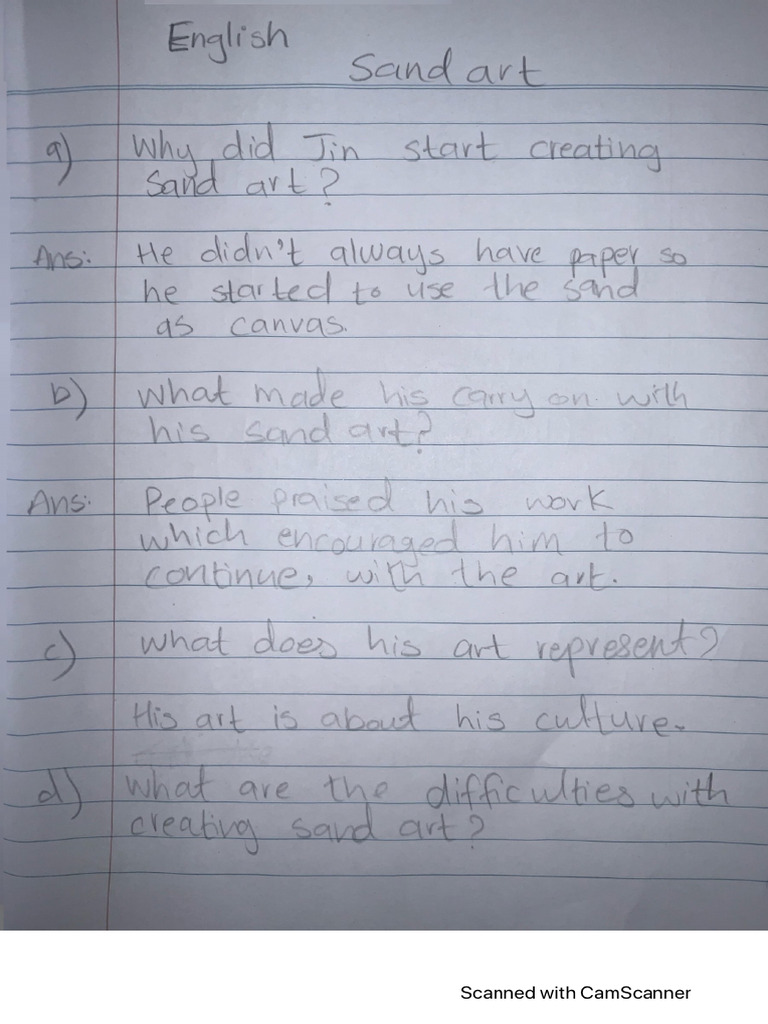 English
Sand art
a) Why did Jin start creating
sand art?
Ans: He didn't always have paper so
he started to use the sand
as canvas.
b) What made his carry on with
his sand art?
Ans: People praised his work
which encouraged him to
continue, with the art.
c) What does his art represent?
His art is about his culture.
d) What are the difficulties with
creating sand art?
Scanned with CamScanner